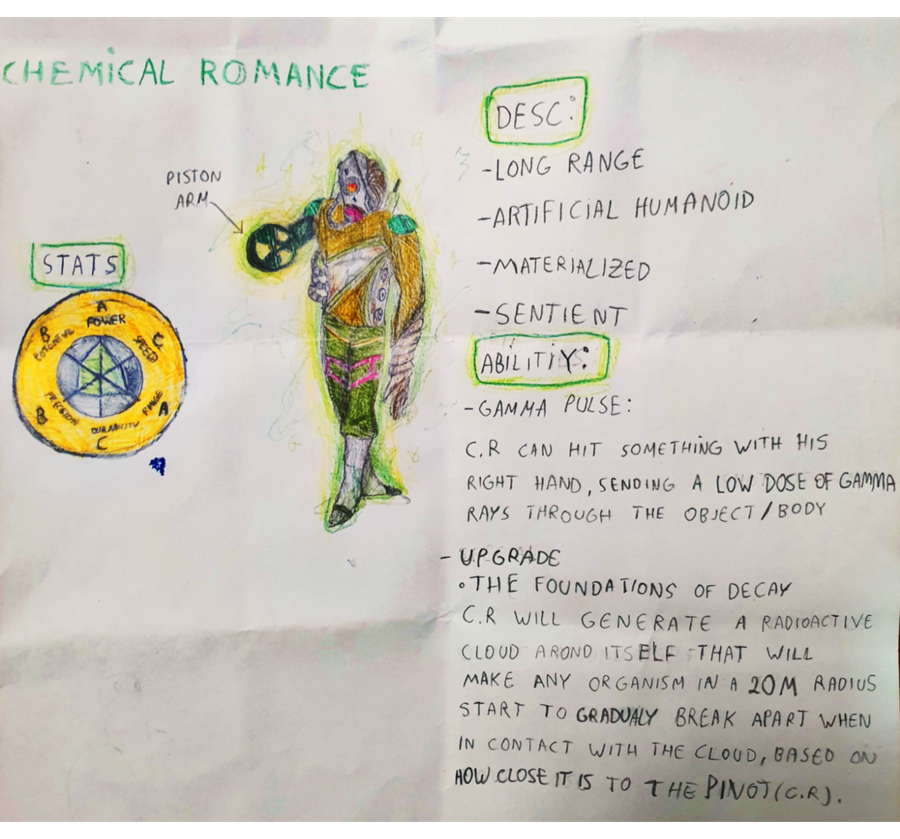 CHEMICAL ROMANCE
PISTON
ARM
STATS
A
POWER
C
SPEED
A
RANGE
C
DURABILITY
B
PRECISION
B
POTENTIAL
DESC:
-LONG RANGE
-ARTIFICIAL HUMANOID
-MATERIALIZED
-SENTIENT
ABILITIY:
-GAMMA PULSE:
C.R CAN HIT SOMETHING WITH HIS
RIGHT HAND, SENDING A LOW DOSE OF GAMMA
RAYS THROUGH THE OBJECT/BODY
- UPGRADE
•THE FOUNDATIONS OF DECAY
C.R WILL GENERATE A RADIOACTIVE
CLOUD AROND ITSELF THAT WILL
MAKE ANY ORGANISM IN A 20M RADIUS
START TO GRADUALY BREAK APART WHEN
IN CONTACT WITH THE CLOUD, BASED ON
HOW CLOSE IT IS TO THE PINOT (C.R).